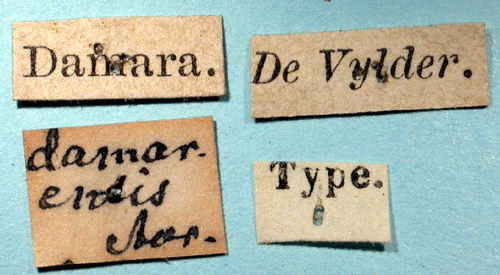 Damara.
De Vylder.
damar-
ensis
Aur.
Type.